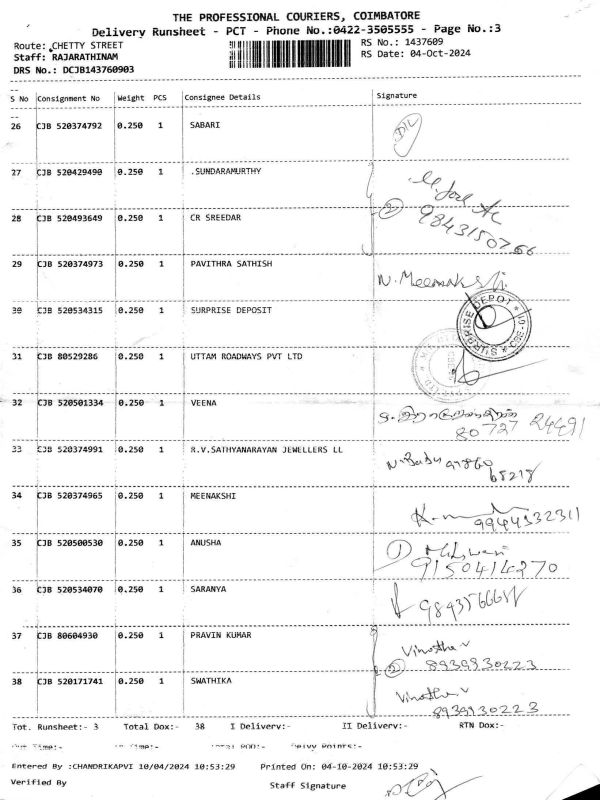 THE PROFESSIONAL COURIERS, COIMBATORE
Delivery Runsheet - PCT - Phone No.:0422-3505555 - Page No.:3
Route: CHETTY STREET
RS No.: 1437609
Staff: RAJARATHINAM
RS Date: 04-Oct-2024
DRS No.: DCJB143760903
S No Consignment No Weight PCS Consignee Details Signature
26 CJB 520374792 0.250 1 SABARI
27 CJB 520429490 0.250 1 .SUNDARAMURTHY
28 CJB 520493649 0.250 1 CR SREEDAR 2 9843150766
29 CJB 520374973 0.250 1 PAVITHRA SATHISH N. Meenakshi
30 CJB 520534315 0.250 1 SURPRISE DEPOSIT
SURPRISE DEPOT
31 CJB 80529286 0.250 1 UTTAM ROADWAYS PVT LTD
32 CJB 520501334 0.250 1 VEENA
80727 24491
33 CJB 520374991 0.250 1 R.V.SATHYANARAYAN JEWELLERS LL N. Babu 97860
65218
34 CJB 520374965 0.250 1 MEENAKSHI
9944532311
35 CJB 520500530 0.250 1 ANUSHA 1
9150414270
36 CJB 520534070 0.250 1 SARANYA
37 CJB 80604930 0.250 1 PRAVIN KUMAR Vinotha v
2 8939930223
38 CJB 520171741 0.250 1 SWATHIKA Vinotha v
8939930223
Tot. Runsheet:- 3 Total Dox:- 38 I Delivery:- II Delivery:- RTN Dox:-
Out Time:- In Time:- Total POD:- Delvy Points:-
Entered By :CHANDRIKAPVI 10/04/2024 10:53:29 Printed On: 04-10-2024 10:53:29
Verified By
Staff Signature